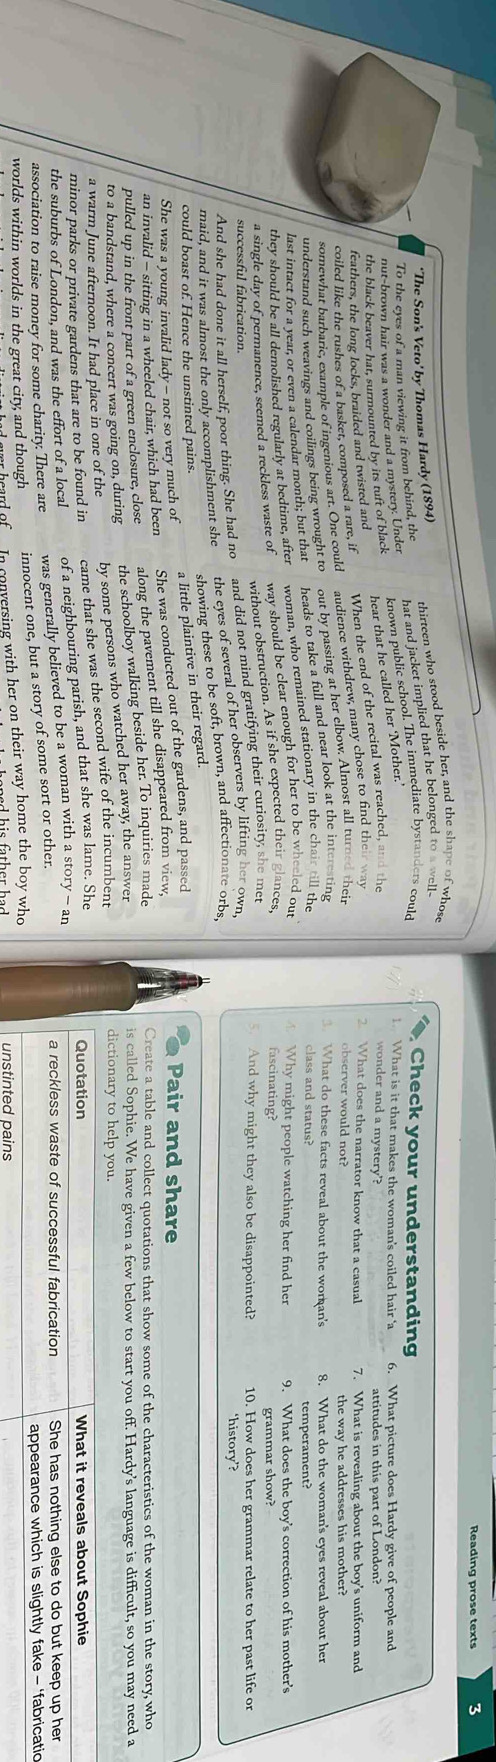 'The Son's Veto' by Thomas Hardy (1894)
To the eyes of a man viewing it from behind, the
nut-brown hair was a wonder and a mystery. Under
the black beaver hat, surmounted by its tuft of black
feathers, the long locks, braided and twisted and
coiled like the rushes of a basket, composed a rare, if
somewhat barbaric, example of ingenious art. One could
understand such weavings and coilings being wrought to
last intact for a year, or even a calendar month; but that
they should be all demolished regularly at bedtime, after
a single day of permanence, seemed a reckless waste of
successful fabrication.
And she had done it all herself, poor thing. She had no
maid, and it was almost the only accomplishment she
could boast of. Hence the unstinted pains.
She was a young invalid lady – not so very much of
an invalid – sitting in a wheeled chair, which had been
pulled up in the front part of a green enclosure, close
to a bandstand, where a concert was going on, during
a warm June afternoon. It had place in one of the
minor parks or private gardens that are to be found in
the suburbs of London, and was the effort of a local
association to raise money for some charity. There are
worlds within worlds in the great city, and though
had ever heard of
thirteen who stood beside her, and the shape of whose
hat and jacket implied that he belonged to a well-
known public school. The immediate bystanders could
hear that he called her 'Mother.'
When the end of the recital was reached, and the
audience withdrew, many chose to find their way
out by passing at her elbow. Almost all turned their
heads to take a full and near look at the interesting
woman, who remained stationary in the chair till the
way should be clear enough for her to be wheeled out
without obstruction. As if she expected their glances,
and did not mind gratifying their curiosity, she met
the eyes of several of her observers by lifting her own,
showing these to be soft, brown, and affectionate orbs,
a little plaintive in their regard.
She was conducted out of the gardens, and passed
along the pavement till she disappeared from view,
the schoolboy walking beside her. To inquiries made
by some persons who watched her away, the answer
came that she was the second wife of the incumbent
of a neighbouring parish, and that she was lame. She
was generally believed to be a woman with a story – an
innocent one, but a story of some sort or other.
In conversing with her on their way home the boy who
hoped his father had
Reading prose texts
3
Check your understanding
1. What is it that makes the woman's coiled hair 'a
wonder and a mystery'?
2. What does the narrator know that a casual
observer would not?
3. What do these facts reveal about the woman's
class and status?
4. Why might people watching her find her
fascinating?
5. And why might they also be disappointed?
6. What picture does Hardy give of people and
attitudes in this part of London?
7. What is revealing about the boy's uniform and
the way he addresses his mother?
8. What do the woman's eyes reveal about her
temperament?
9. What does the boy's correction of his mother's
grammar show?
10. How does her grammar relate to her past life or
'history'?
Pair and share
Create a table and collect quotations that show some of the characteristics of the woman in the story, who
is called Sophie. We have given a few below to start you off. Hardy's language is difficult, so you may need a
dictionary to help you.
Quotation
What it reveals about Sophie
a reckless waste of successful fabrication
She has nothing else to do but keep up her
appearance which is slightly fake – 'fabricatio
unstinted pains